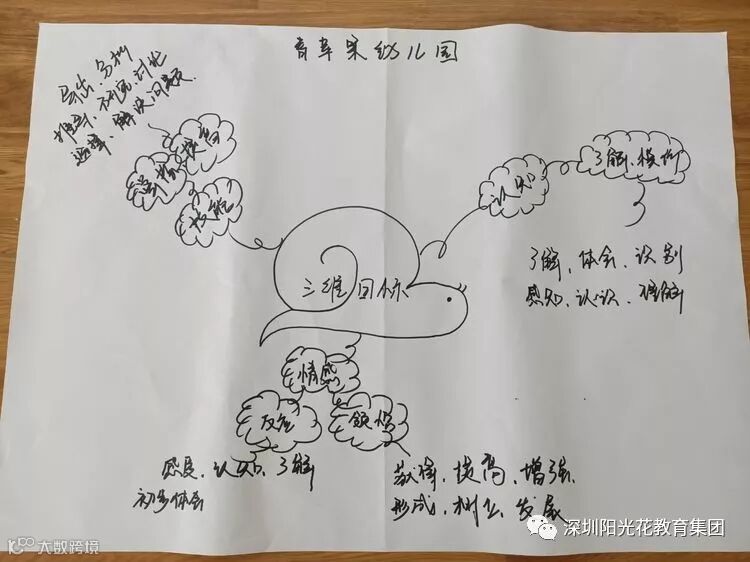 青苹果幼儿园
导出、分析
推导、研究、讨论
选择、解决问题
掌握
技能
认知
了解、模仿
了解、体会、识别
感知、认识、理解
三维目标
情感
反应
领悟
感受、认知、了解
初步体会
获得、提高、增强、
形成、树立、发展
大数跨境
深圳阳光花教育集团